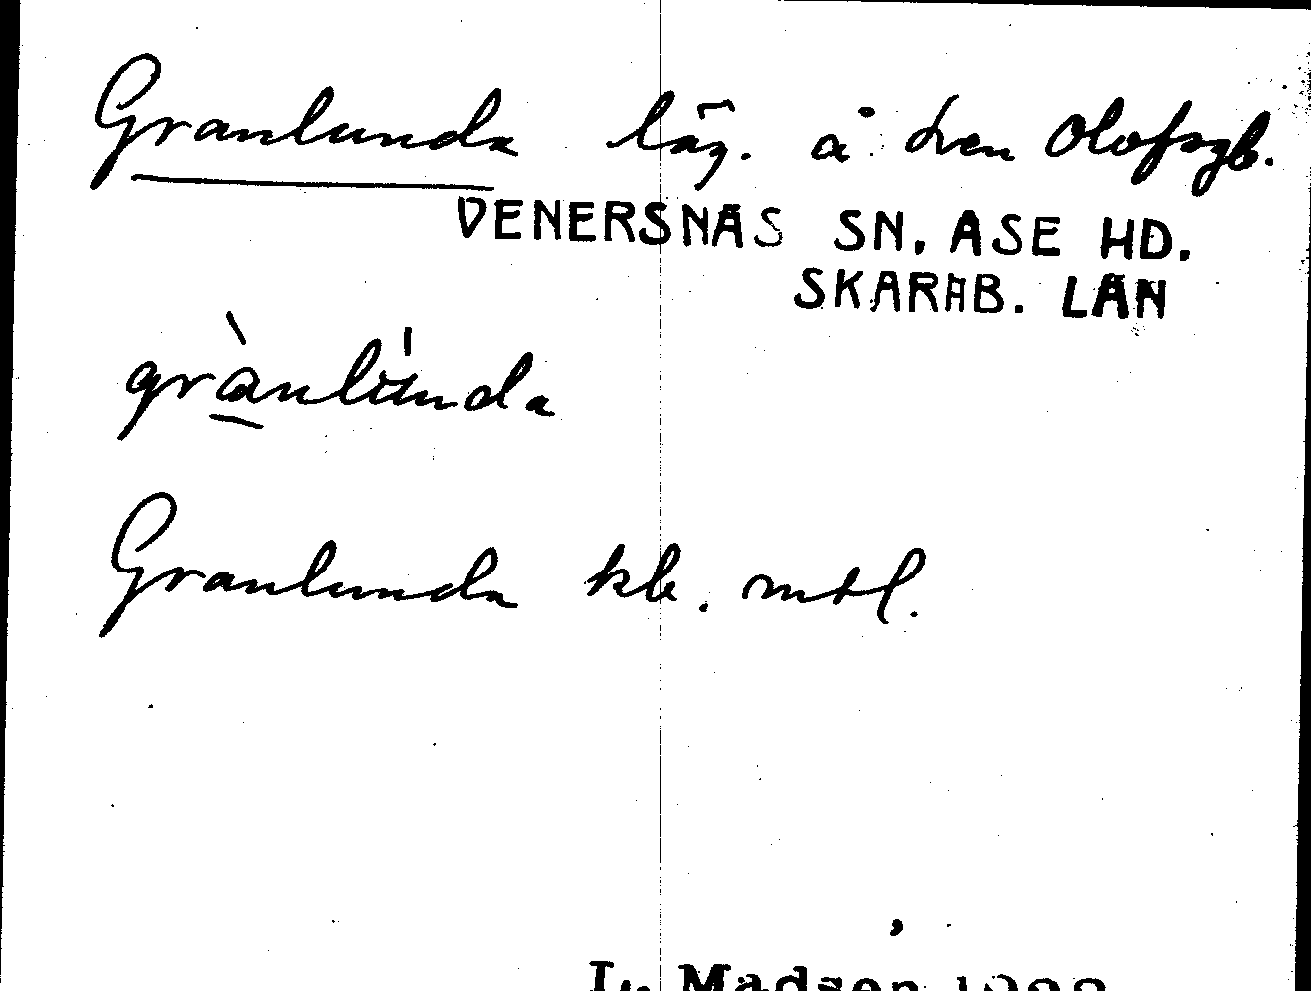 Granlunda läg. å Sven Olofsgb.
VENERSNÄS SN. ÅSE HD.
SKARAB. LÄN
grànlúnda
Granlunda kb. mtl.
L. Madsen